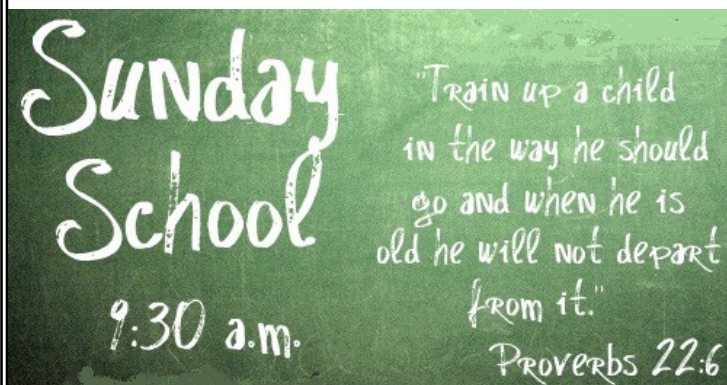 Sunday
School
9:30 a.m.
"Train up a child
in the way he should
go and when he is
old he will not depart
from it."
Proverbs 22:6